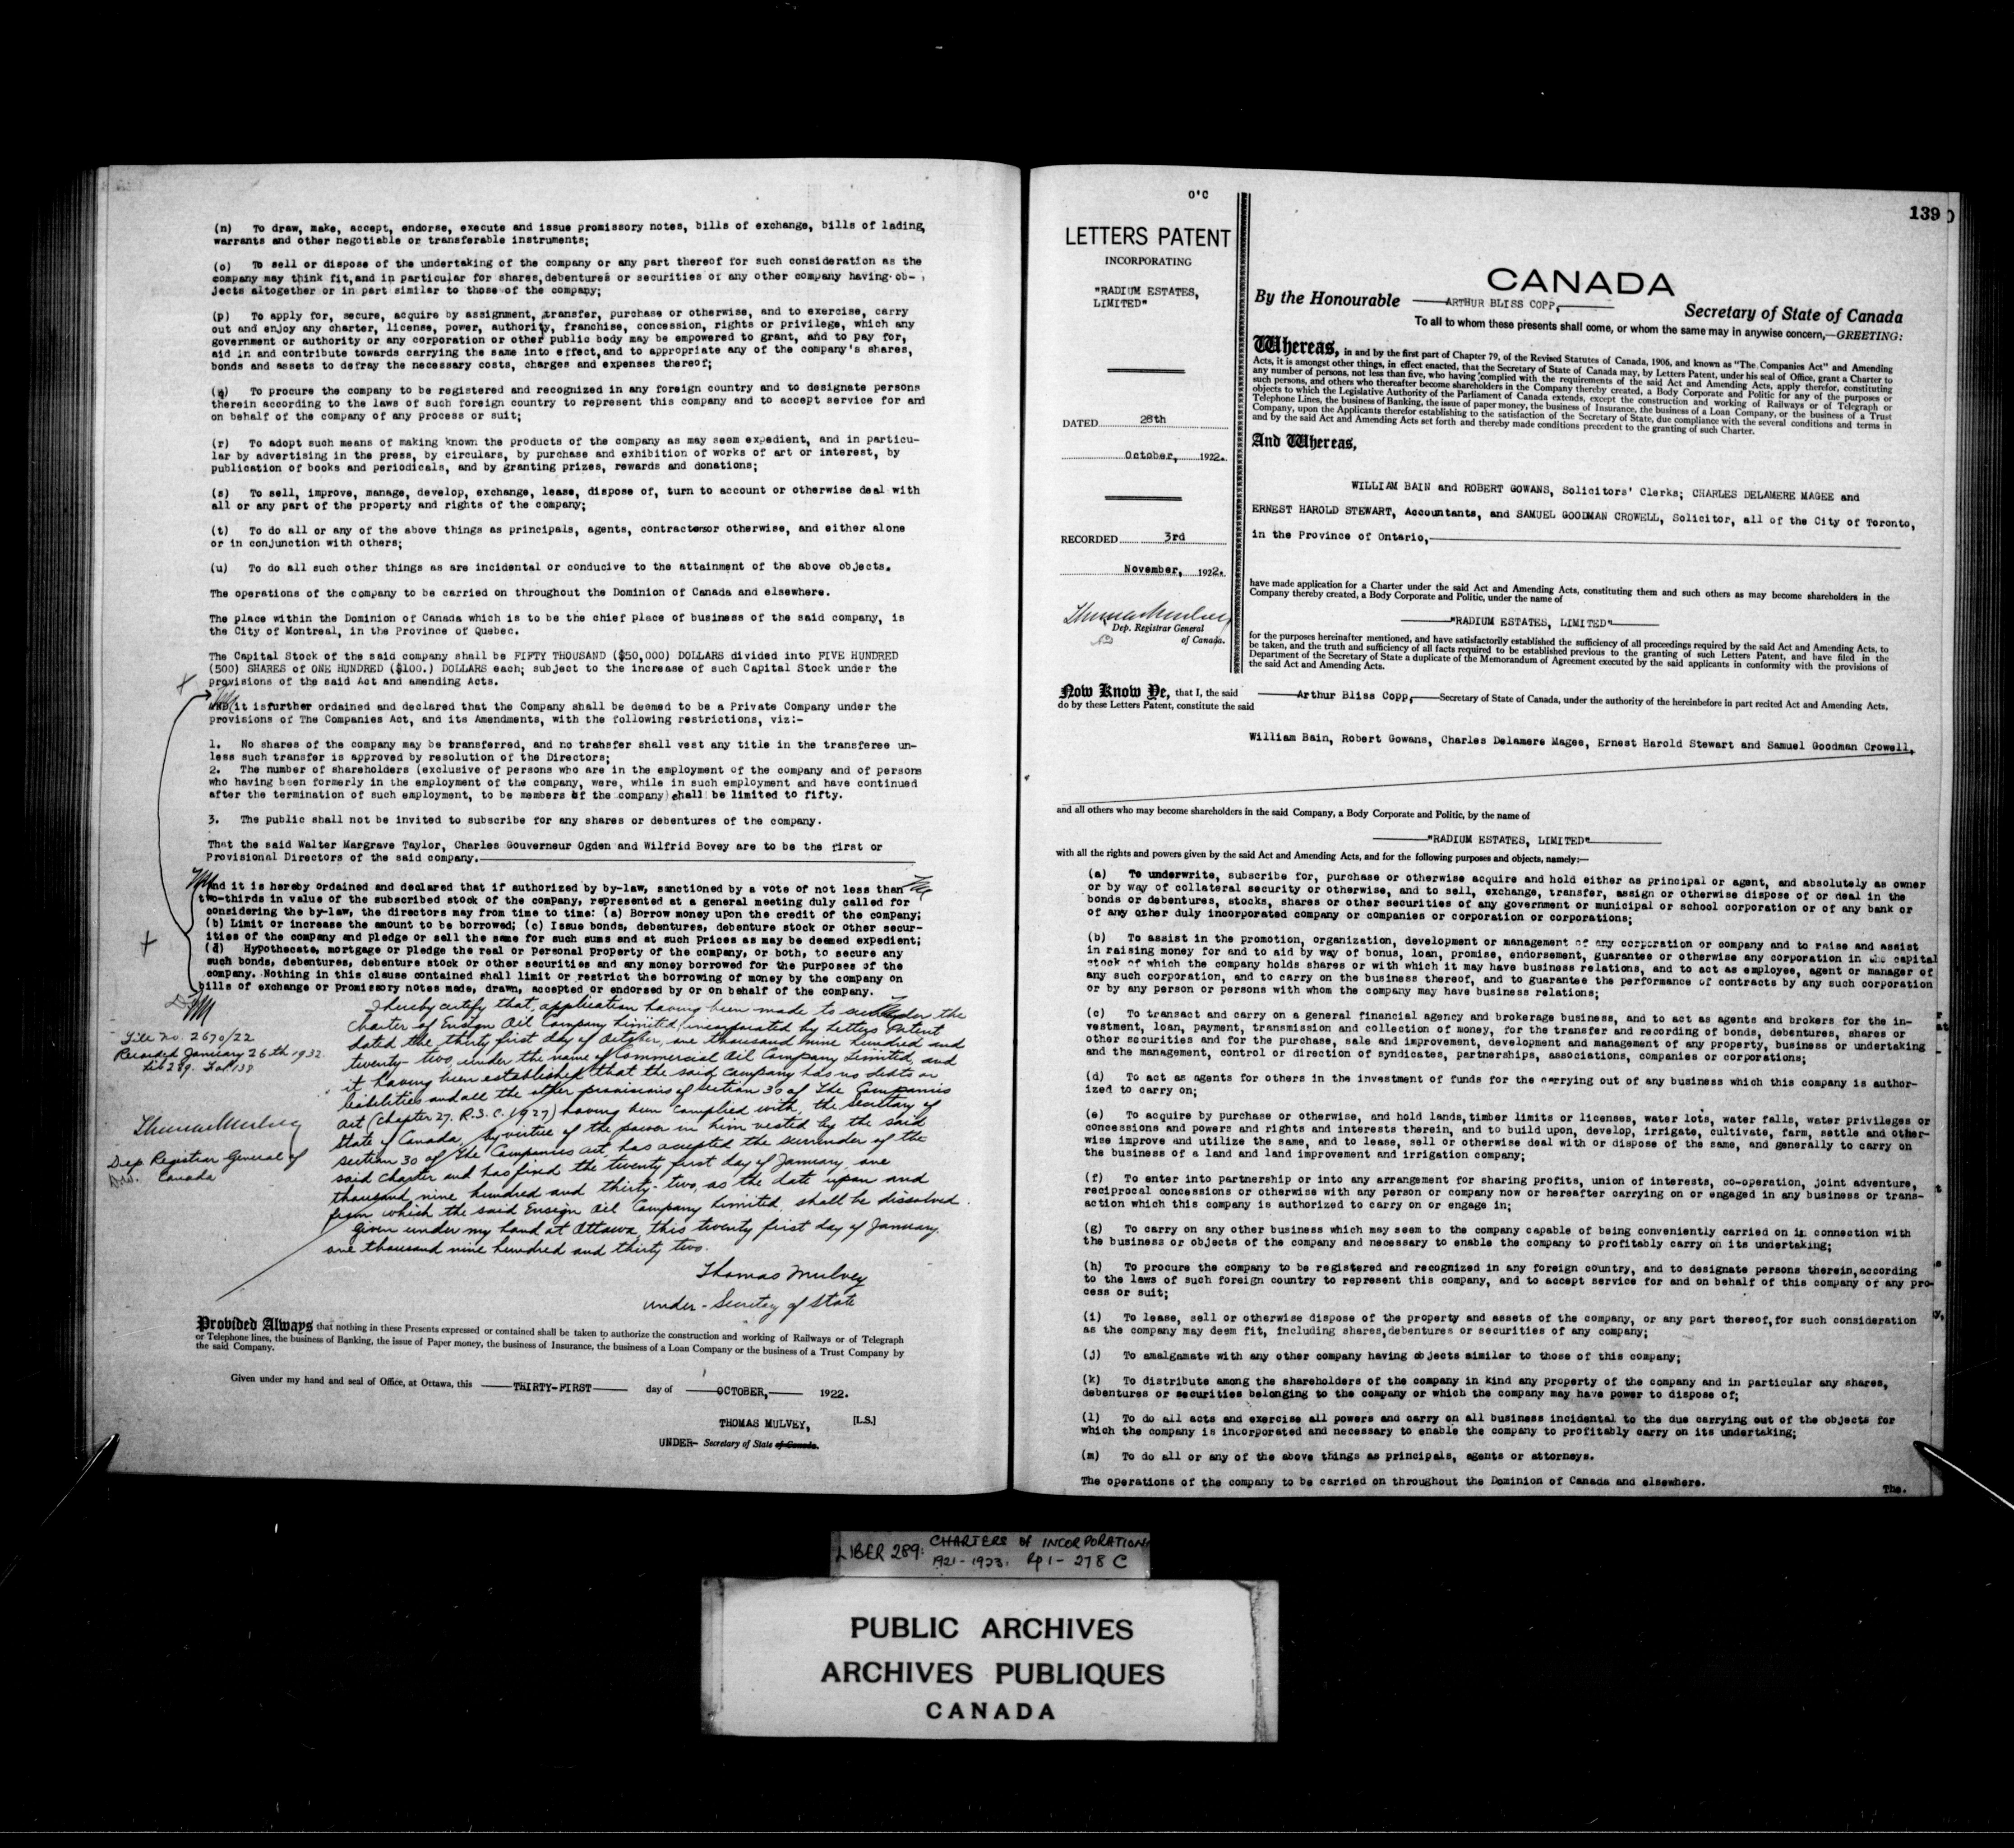 (n) To draw, make, accept, endorse, execute and issue promissory notes, bills of exchange, bills of lading,
warrants and other negotiable or transferable instruments;
(o) To sell or dispose of the undertaking of the company or any part thereof for such consideration as the
company may think fit,and in particular for shares,debentures or securities of any other company having ob-
jects altogether or in part similar to those of the company;
(p) To apply for, secure, acquire by assignment, transfer, purchase or otherwise, and to exercise, carry
out and enjoy any charter, license, power, authority, franchise, concession, rights or privilege, which any
government or authority or any corporation or other public body may be empowered to grant, and to pay for,
aid in and contribute towards carrying the same into effect,and to appropriate any of the company's shares,
bonds and assets to defray the necessary costs, charges and expenses thereof;
(q) To procure the company to be registered and recognized in any foreign country and to designate persons
therein according to the laws of such foreign country to represent this company and to accept service for and
on behalf of the company of any process or suit;
(r) To adopt such means of making known the products of the company as may seem expedient, and in particu-
lar by advertising in the press, by circulars, by purchase and exhibition of works of art or interest, by
publication of books and periodicals, and by granting prizes, rewards and donations;
(s) To sell, improve, manage, develop, exchange, lease, dispose of, turn to account or otherwise deal with
all or any part of the property and rights of the company;
(t) To do all or any of the above things as principals, agents, contractors or otherwise, and either alone
or in conjunction with others;
(u) To do all such other things as are incidental or conducive to the attainment of the above objects.
The operations of the company to be carried on throughout the Dominion of Canada and elsewhere.
The place within the Dominion of Canada which is to be the chief place of business of the said company, is
the City of Montreal, in the Province of Quebec.
The Capital Stock of the said company shall be FIFTY THOUSAND ($50,000) DOLLARS divided into FIVE HUNDRED
(500) SHARES of ONE HUNDRED ($100.) DOLLARS each; subject to the increase of such Capital Stock under the
provisions of the said Act and amending Acts.
And it is further ordained and declared that the Company shall be deemed to be a Private Company under the
provisions of The Companies Act, and its Amendments, with the following restrictions, viz:-
1. No shares of the company may be transferred, and no transfer shall vest any title in the transferee un-
less such transfer is approved by resolution of the Directors;
2. The number of shareholders (exclusive of persons who are in the employment of the company and of persons
who having been formerly in the employment of the company, were, while in such employment and have continued
after the termination of such employment, to be members of the company) shall be limited to fifty.
3. The public shall not be invited to subscribe for any shares or debentures of the company.
That the said Walter Margrave Taylor, Charles Gouverneur Ogden and Wilfrid Bovey are to be the first or
Provisional Directors of the said company.
And it is hereby ordained and declared that if authorized by by-law, sanctioned by a vote of not less than
two-thirds in value of the subscribed stock of the company, represented at a general meeting duly called for
considering the by-law, the directors may from time to time: (a) Borrow money upon the credit of the company;
(b) Limit or increase the amount to be borrowed; (c) Issue bonds, debentures, debenture stock or other secur-
ities of the company and pledge or sell the same for such sums and at such prices as may be deemed expedient;
(d) Hypothecate, mortgage or pledge the real or personal property of the company, or both, to secure any
such bonds, debentures, debenture stock or other securities and any money borrowed for the purposes of the
company. Nothing in this clause contained shall limit or restrict the borrowing of money by the company on
bills of exchange or promissory notes made, drawn, accepted or endorsed by or on behalf of the company.
File No. 2670/22
Recorded January 26th 1932
Lib 289. Fol 138
Thomas Mulvey
Dep Registrar General of
Canada
I hereby certify that, application having been made to surrender the
charter of Ensign Oil Company Limited, incorporated by Letters Patent
dated the thirty first day of October, one thousand nine hundred and
twenty-two, under the name of Commercial Oil Company Limited, and
it having been established that the said company has no debts or
liabilities and all the other provisions of section 30 of The Companies
Act (Chapter 27. R.S.C. 1927) having been complied with, the Secretary of
State of Canada, by virtue of the power in him vested by the said
section 30 of The Companies Act, has accepted the surrender of the
said charter and has fixed the twenty first day of January, one
thousand nine hundred and thirty-two, as the date upon and
from which the said Ensign Oil Company Limited, shall be dissolved.
Given under my hand at Ottawa, this twenty first day of January.
one thousand nine hundred and thirty two.
Thomas Mulvey
Under-Secretary of State
Provided Always that nothing in these Presents expressed or contained shall be taken to authorize the construction and working of Railways or of Telegraph
or Telephone lines, the business of Banking, the issue of Paper money, the business of Insurance, the business of a Loan Company or the business of a Trust Company by
the said Company.
Given under my hand and seal of Office, at Ottawa, this THIRTY-FIRST day of OCTOBER, 1922.
THOMAS MULVEY, [L.S.]
UNDER- Secretary of State of Canada.
O'C
LETTERS PATENT
INCORPORATING
"RADIUM ESTATES,
LIMITED"
DATED 28th
October, 1922.
RECORDED 3rd
November, 1922.
Thomas Mulvey
Dep. Registrar General
of Canada.
139
CANADA
By the Honourable ARTHUR BLISS COPP, Secretary of State of Canada
To all to whom these presents shall come, or whom the same may in anywise concern,—GREETING:
Whereas, in and by the first part of Chapter 79, of the Revised Statutes of Canada, 1906, and known as "The Companies Act" and Amending
Acts, it is amongst other things, in effect enacted, that the Secretary of State of Canada may, by Letters Patent, under his seal of Office, grant a Charter to
any number of persons, not less than five, who having complied with the requirements of the said Act and Amending Acts, apply therefor, constituting
such persons, and others who thereafter become shareholders in the Company thereby created, a Body Corporate and Politic for any of the purposes or
objects to which the Legislative Authority of the Parliament of Canada extends, except the construction and working of Railways or of Telegraph or
Telephone Lines, the business of Banking, the issue of paper money, the business of Insurance, the business of a Loan Company, or the business of a Trust
Company, upon the Applicants therefor establishing to the satisfaction of the Secretary of State, due compliance with the several conditions and terms in
and by the said Act and Amending Acts set forth and thereby made conditions precedent to the granting of such Charter.
And Whereas,
WILLIAM BAIN and ROBERT GOWANS, Solicitors' Clerks; CHARLES DELAMERE MAGEE and
ERNEST HAROLD STEWART, Accountants, and SAMUEL GOODMAN CROWELL, Solicitor, all of the City of Toronto,
in the Province of Ontario,
have made application for a Charter under the said Act and Amending Acts, constituting them and such others as may become shareholders in the
Company thereby created, a Body Corporate and Politic, under the name of
"RADIUM ESTATES, LIMITED"
for the purposes hereinafter mentioned, and have satisfactorily established the sufficiency of all proceedings required by the said Act and Amending Acts, to
be taken, and the truth and sufficiency of all facts required to be established previous to the granting of such Letters Patent, and have filed in the
Department of the Secretary of State a duplicate of the Memorandum of Agreement executed by the said applicants in conformity with the provisions of
the said Act and Amending Acts.
Now Know Ye, that I, the said Arthur Bliss Copp, Secretary of State of Canada, under the authority of the hereinbefore in part recited Act and Amending Acts,
do by these Letters Patent, constitute the said
William Bain, Robert Gowans, Charles Delamere Magee, Ernest Harold Stewart and Samuel Goodman Crowell,
and all others who may become shareholders in the said Company, a Body Corporate and Politic, by the name of
"RADIUM ESTATES, LIMITED"
with all the rights and powers given by the said Act and Amending Acts, and for the following purposes and objects, namely:—
(a) To underwrite, subscribe for, purchase or otherwise acquire and hold either as principal or agent, and absolutely as owner
or by way of collateral security or otherwise, and to sell, exchange, transfer, assign or otherwise dispose of or deal in the
bonds or debentures, stocks, shares or other securities of any government or municipal or school corporation or of any bank or
of any other duly incorporated company or companies or corporation or corporations;
(b) To assist in the promotion, organization, development or management of any corporation or company and to raise and assist
in raising money for and to aid by way of bonus, loan, promise, endorsement, guarantee or otherwise any corporation in the capital
stock of which the company holds shares or with which it may have business relations, and to act as employee, agent or manager of
any such corporation, and to carry on the business thereof, and to guarantee the performance of contracts by any such corporation
or by any person or persons with whom the company may have business relations;
(c) To transact and carry on a general financial agency and brokerage business, and to act as agents and brokers for the in-
vestment, loan, payment, transmission and collection of money, for the transfer and recording of bonds, debentures, shares or
other securities and for the purchase, sale and improvement, development and management of any property, business or undertaking
and the management, control or direction of syndicates, partnerships, associations, companies or corporations;
(d) To act as agents for others in the investment of funds for the carrying out of any business which this company is author-
ized to carry on;
(e) To acquire by purchase or otherwise, and hold lands,timber limits or licenses, water lots, water falls, water privileges or
concessions and powers and rights and interests therein, and to build upon, develop, irrigate, cultivate, farm, settle and other-
wise improve and utilize the same, and to lease, sell or otherwise deal with or dispose of the same, and generally to carry on
the business of a land and land improvement and irrigation company;
(f) To enter into partnership or into any arrangement for sharing profits, union of interests, co-operation, joint adventure,
reciprocal concessions or otherwise with any person or company now or hereafter carrying on or engaged in any business or trans-
action which this company is authorized to carry on or engage in;
(g) To carry on any other business which may seem to the company capable of being conveniently carried on in connection with
the business or objects of the company and necessary to enable the company to profitably carry on its undertaking;
(h) To procure the company to be registered and recognized in any foreign country, and to designate persons therein,according
to the laws of such foreign country to represent this company, and to accept service for and on behalf of this company of any pro-
cess or suit;
(i) To lease, sell or otherwise dispose of the property and assets of the company, or any part thereof,for such consideration
as the company may deem fit, including shares,debentures or securities of any company;
(j) To amalgamate with any other company having objects similar to those of this company;
(k) To distribute among the shareholders of the company in kind any property of the company and in particular any shares,
debentures or securities belonging to the company or which the company may have power to dispose of;
(l) To do all acts and exercise all powers and carry on all business incidental to the due carrying out of the objects for
which the company is incorporated and necessary to enable the company to profitably carry on its undertaking;
(m) To do all or any of the above things as principals, agents or attorneys.
The operations of the company to be carried on throughout the Dominion of Canada and elsewhere.
The.
LIBER 289: CHARTERS of INCORPORATION
1921-1923. Rp 1-278 C
PUBLIC ARCHIVES
ARCHIVES PUBLIQUES
CANADA